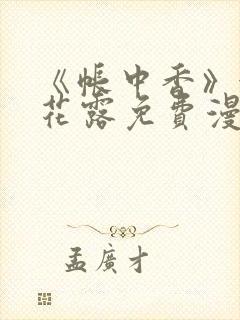 《帳中香》
花露免費漫
孟廣才